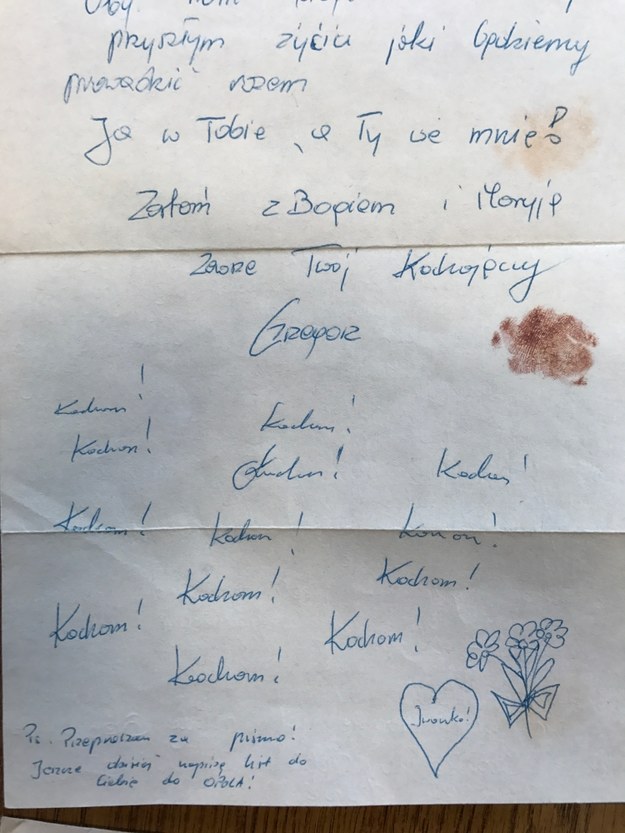 przyszłym życiu jaki będziemy
prowadzić razem
Ja w Tobie, a Ty we mnie?
Zostań z Bogiem i Maryją
Zawsze Twój Kochający
Grzegorz
Kocham!
Kocham! Kocham!
Kocham! Kocham!
Kocham! Kocham! Kocham!
Kocham! Kocham!
Kocham! Kocham!
Kocham!
Iwonka!
Ps. Przepraszam za pismo!
Jeszcze dzisiaj napiszę list do
Ciebie do OPOLA!